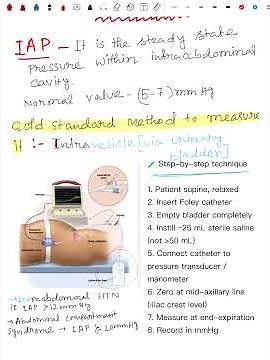 IAP - It is the steady state
Pressure within intraabdominal
cavity.
Normal value - (5-7) mm Hg
Gold standard Method to measure
it :- Intravesicle [via urinary
bladder]
Step-by-step technique
1. Patient supine, relaxed
2. Insert Foley catheter
3. Empty bladder completely
4. Instill ~25 mL sterile saline
(not >50 mL)
5. Connect catheter to
pressure transducer /
manometer
6. Zero at mid-axillary line
(iliac crest level)
7. Measure at end-expiration
8. Record in mmHg.
abdominal HTN
IAP >12 mm Hg
→ Abdominal compartment
syndrome → IAP > 20mmHg